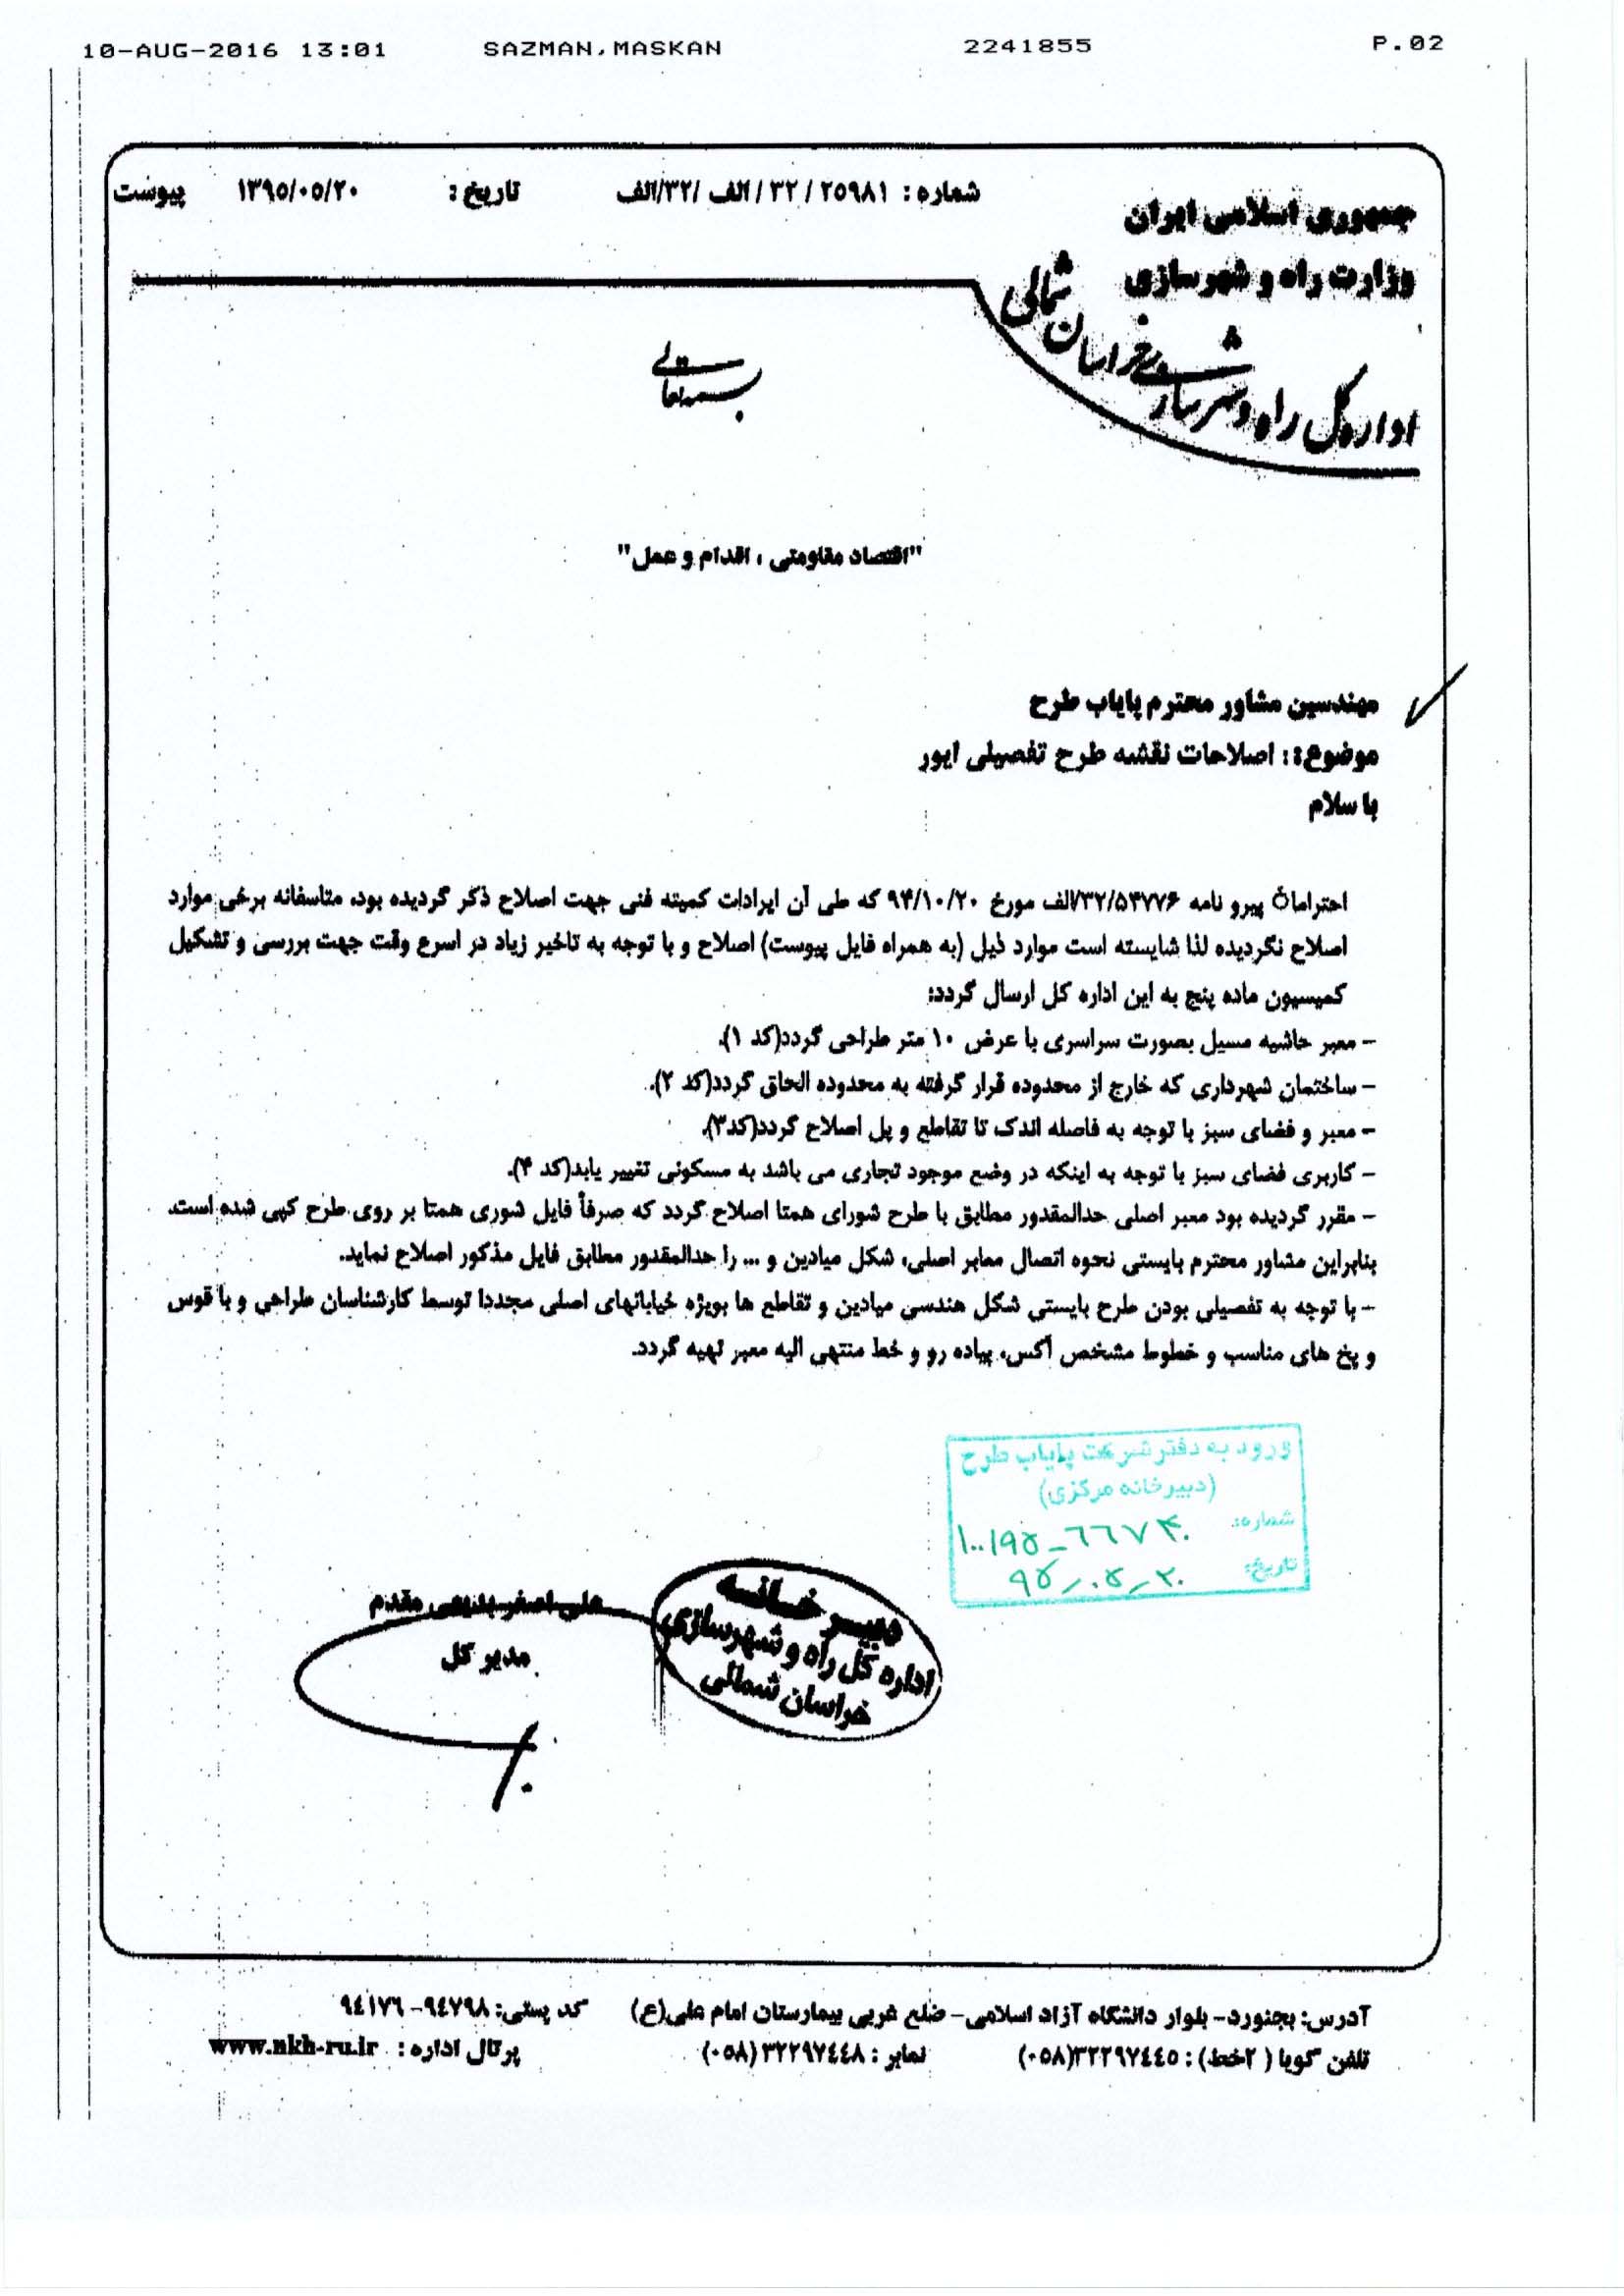 10-AUG-2016 13:01 SAZMAN.MASKAN 2241855 P.02
جمهوری اسلامی ایران
وزارت راه و شهرسازی
اداره کل راه و شهرسازی خراسان شمالی
شماره : ۲۵۹۸۱ / ۳۲ / الف /۳۲/الف تاریخ : ۱۳۹۵/۰۵/۲۰ پیوست
بسمه تعالی
"اقتصاد مقاومتی ، اقدام و عمل"
مهندسین مشاور محترم پایاب طرح
موضوع: اصلاحات نقشه طرح تفصیلی ایور
با سلام
احتراماً، پیرو نامه ۳۲/۵۴۷۷۶/الف مورخ ۹۴/۱۰/۲۰ که طی آن ایرادات کمیته فنی جهت اصلاح ذکر گردیده بود، متاسفانه برخی موارد
اصلاح نگردیده لذا شایسته است موارد ذیل (به همراه فایل پیوست) اصلاح و با توجه به تاخیر زیاد در اسرع وقت جهت بررسی و تشکیل
کمیسیون ماده پنج به این اداره کل ارسال گردد:
– معبر حاشیه مسیل بصورت سراسری با عرض ۱۰ متر طراحی گردد(کد ۱).
– ساختمان شهرداری که خارج از محدوده قرار گرفته به محدوده الحاق گردد(کد ۲).
– معبر و فضای سبز با توجه به فاصله اندک تا تقاطع و پل اصلاح گردد(کد۳).
– کاربری فضای سبز با توجه به اینکه در وضع موجود تجاری می باشد به مسکونی تغییر یابد(کد ۴).
– مقرر گردیده بود معبر اصلی حدالمقدور مطابق با طرح شورای همتا اصلاح گردد که صرفاً فایل شوری همتا بر روی طرح کپی شده است.
بنابراین مشاور محترم بایستی نحوه اتصال معابر اصلی، شکل میادین و ... را حدالمقدور مطابق فایل مذکور اصلاح نماید.
– با توجه به تفصیلی بودن طرح بایستی شکل هندسی میادین و تقاطع ها بویژه خیابانهای اصلی مجددا توسط کارشناسان طراحی و با قوس
و پخ های مناسب و خطوط مشخص آکس، پیاده رو و خط منتهی الیه معبر تهیه گردد.
ورود به دفتر شرکت پایاب طرح
(دبیرخانه مرکزی)
شماره: ۱۰۰/۹۵-۶۶۷۴۰
تاریخ: ۹۵/۰۵/۲۰
علی اصغر بدیعی مقدم
مدیر کل
دبیرخانه
اداره کل راه و شهرسازی
خراسان شمالی
آدرس: بجنورد– بلوار دانشگاه آزاد اسلامی– ضلع غربی بیمارستان امام علی(ع) کد پستی: ۹٤۷۹۸–۹٤۱۷٦
تلفن گویا ( ۲خط) : ۳۲۲۹۷٤٤٥(۰۵۸) نمابر : ۳۲۲۹۷٤٤۸ (۰۵۸) پرتال اداره : www.nkh-ru.ir